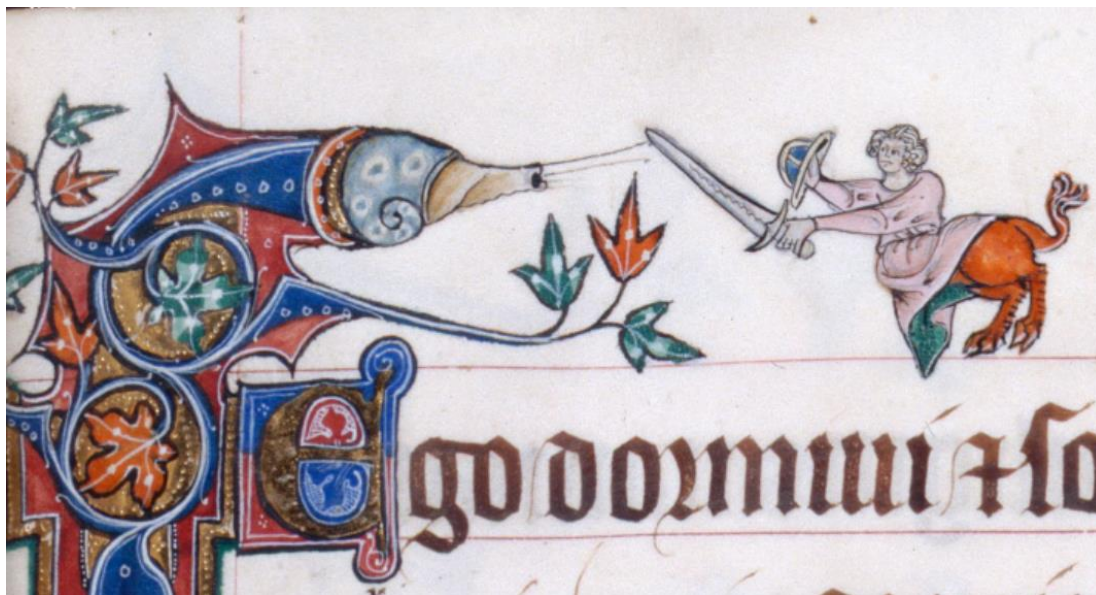 Ego dormiui ⁊ so